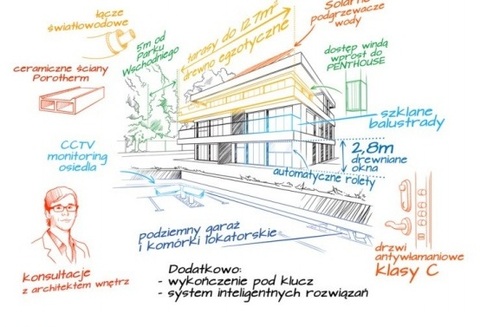 łącze
światłowodowe
5m od
Parku
Wschodniego
tarasy do 12,7m²
drewno egzotyczne
Solarne
podgrzewacze
wody
dostęp windą
wprost do
PENTHOUSE
ceramiczne ściany
Porotherm
szklane
balustrady
CCTV
monitoring
osiedla
2,8m
drewniane
okna
automatyczne rolety
podziemny garaż
i komórki lokatorskie
drzwi
antywłamaniowe
klasy C
konsultacje
z architektem wnętrz
Dodatkowo:
- wykończenie pod klucz
- system inteligentnych rozwiązań